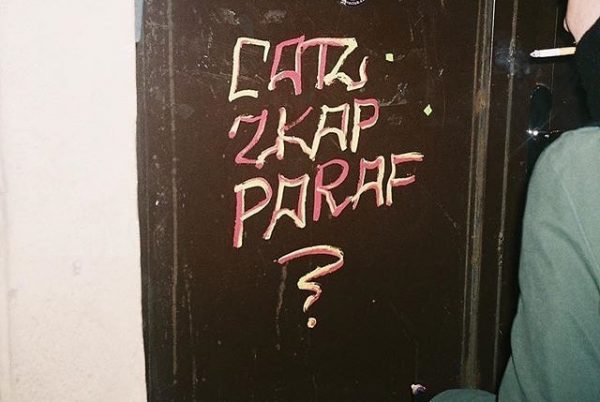 CATZ
ZKAP
PARAF
?